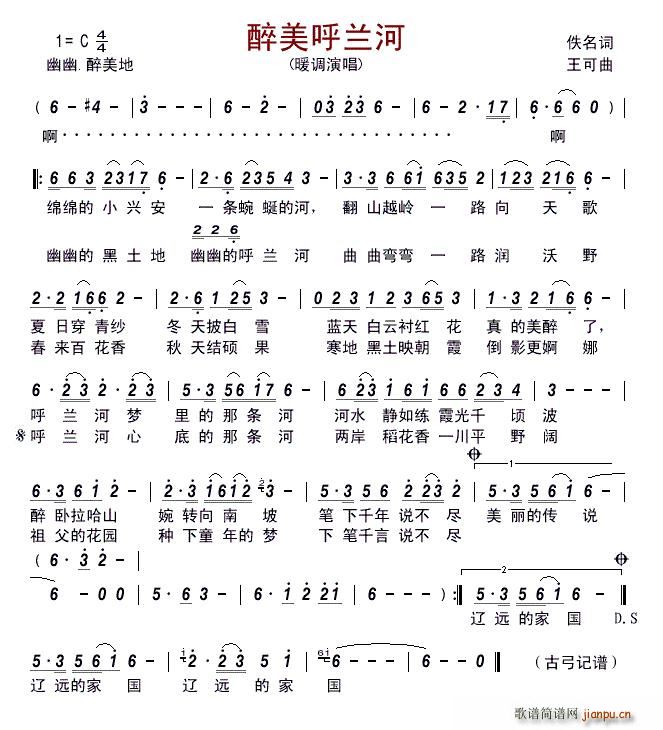 1= C 4/4
醉美呼兰河
佚名词
幽幽.醉美地
(暖调演唱)
王可曲
( 6 - #4 - | 3 - - - | 6 - 2 - | 03 23 6 - | 1 - - 2·7 | 6·6 6 0 )
啊·······································啊
‖: 6 6 3 2317 6 - | 2·6 2235 4 3 | 3·3 661 635 2 | 123 216 6 - |
绵绵的 小兴安 一条蜿 蜒的河, 翻山越岭 一路向 天歌
2 2 6
幽幽的 黑土地 幽幽的呼兰河 曲曲弯弯 一路润 沃野
2·2 166 2 - | 6·1 2 25 3 - | 0 2 23 1 2 3 65 3 | 3·3 2 1 216 6 - |
夏日穿青纱 冬天披白雪 蓝天白云衬红花 真的美醉了,
春来百花香 秋天结硕果 寒地黑土映朝霞 倒影更婀娜
6·2 3 2·2 3 | 3·5 56 17 6 - | 2·23 161 66 2 34 | 3 - - - |
呼兰河梦 里的那条河 河水静如练霞光千顷波
𝄋呼兰河心 底的那条河 两岸稻花香一川平野阔
6·3 6 1 2 - | 2·3 1612 3· - | 5·3 5 6 2 23 2 | 5·3 561 6 - |
1
醉卧拉哈山 婉转向南坡 笔下千年说不尽 美丽的传说
祖父的花园 种下童年的梦 下笔千言说不尽
( 6·3 2 -
6 - 0 0 | 3 - - - | 6·1 2 21 | 6 - - ) :‖ 5·3 561 6 - :‖
2
辽远的家国 D.S
5·3 5 61 6 - | 2·2 3 5 1 | 6 - - - | 6 - - 0 ‖ (古弓记谱)
辽远的家国 辽远的家国
歌谱简谱网 jianpu.cn